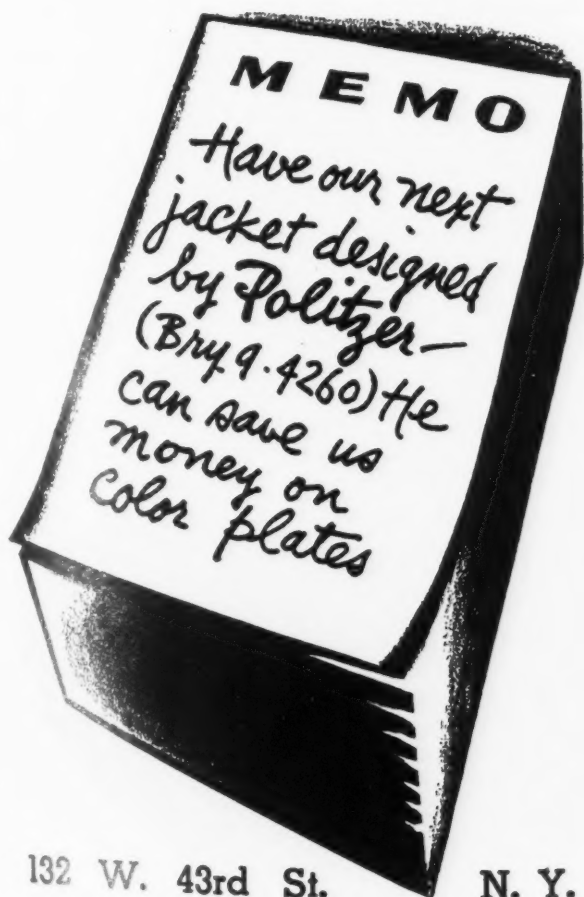 MEMO
Have our next
jacket designed
by Politzer—
(Bry. 9.4260) He
can save us
money on
color plates
132 W. 43rd St. N. Y.